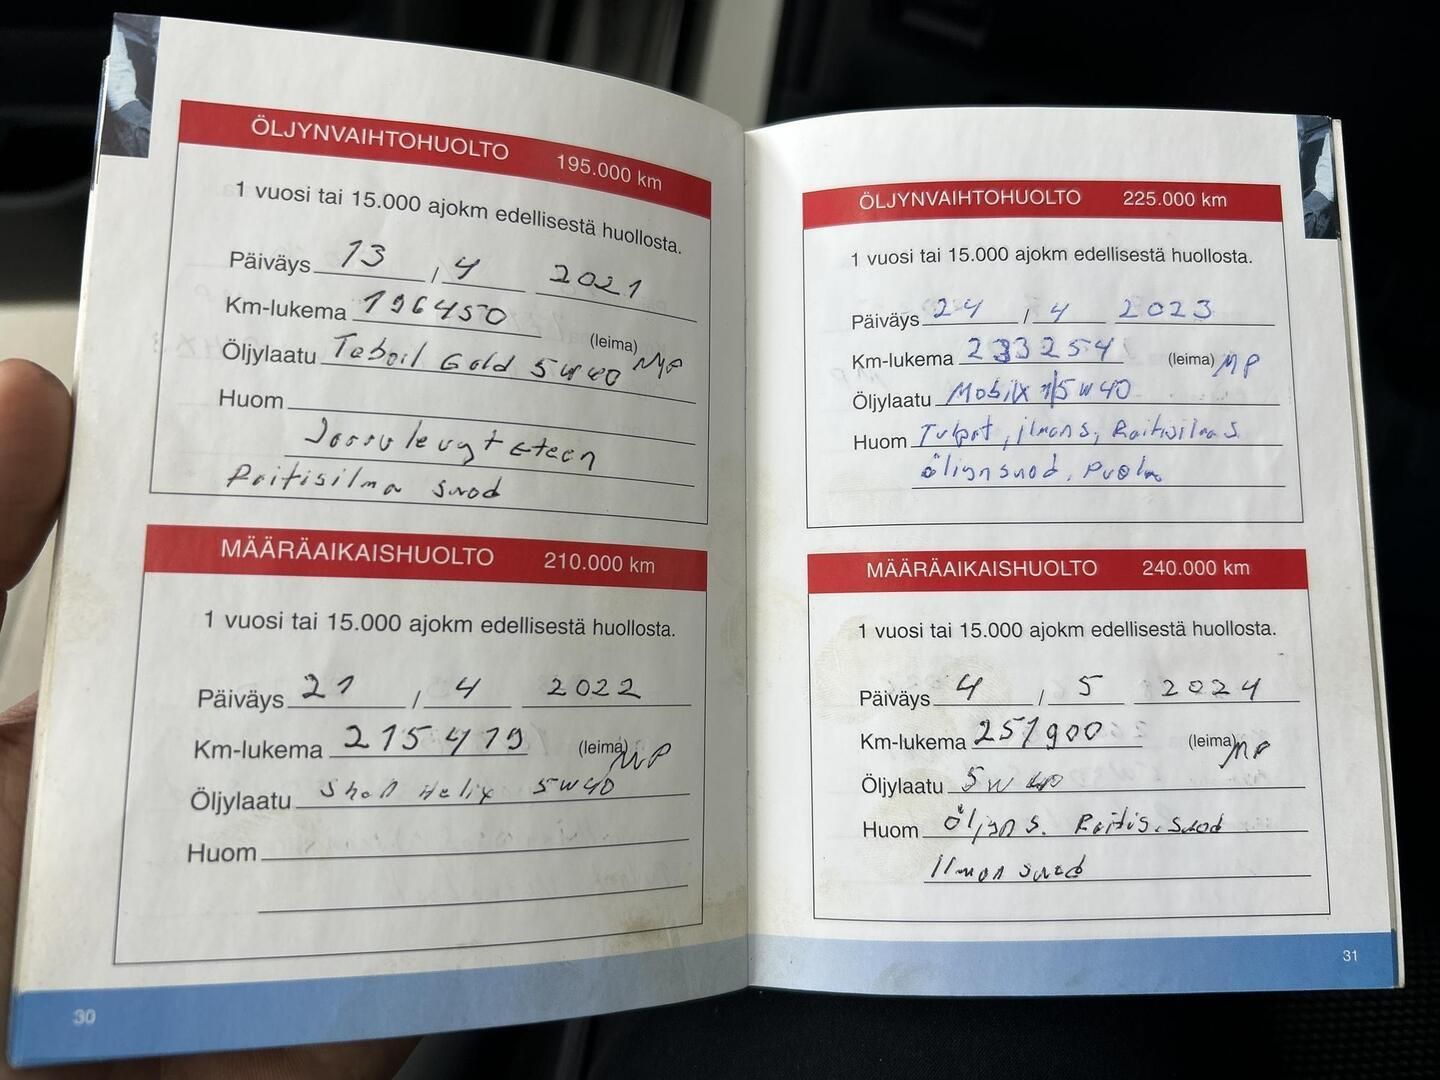 ÖLJYNVAIHTOHUOLTO 195.000 km
1 vuosi tai 15.000 ajokm edellisestä huollosta.
Päiväys 13 / 4 2021
Km-lukema 196450
(leima) MP
Öljylaatu Teboil Gold 5W40
Huom
Jarrulevyt Eteen
Raitisilma suod
MÄÄRÄAIKAISHUOLTO 210.000 km
1 vuosi tai 15.000 ajokm edellisestä huollosta.
Päiväys 21 / 4 2022
Km-lukema 215419
(leima) MP
Öljylaatu Shell Helix 5W40
Huom
30
ÖLJYNVAIHTOHUOLTO 225.000 km
1 vuosi tai 15.000 ajokm edellisestä huollosta.
Päiväys 24 / 4 2023
Km-lukema 233254 (leima) MP
Öljylaatu 5W40
Huom Tulpat, ilmans, Raitisilmas
öljynsuod, Puola
MÄÄRÄAIKAISHUOLTO 240.000 km
1 vuosi tai 15.000 ajokm edellisestä huollosta.
Päiväys 4 / 5 2024
Km-lukema 251900 (leima) MP
Öljylaatu 5W40
Huom Öljyns. Raitis.suod
Ilman suod
31